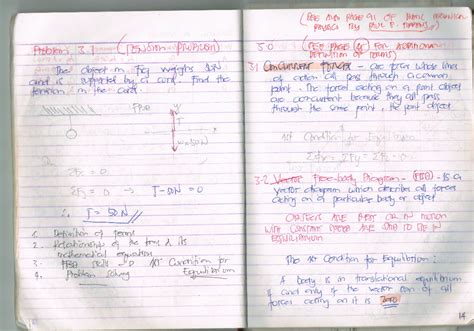 Problem 3.1 (TENSION - PROBLEM)
The object in Fig weighs 50N
and is supported by a cord. Find the
tension in the cord.
FBD
T
w=50N
ΣFy = 0
ΣFy = 0 → T-50N = 0
∴ T = 50N
1.
2. Relationship of the & its
mathematical equation
3. FBD skill 1st Condition for
Equilibrium
4. Problem Solving
(SEE AND PAGE 91 OF
PHYSICS BY PAUL E. TIPPENS)
3.0 (SEE PAGE FOR ADDITIONAL
DEFINITION OF TERMS)
3.1 Concurrent Forces - are forces whose lines
of action all pass through a common
point. The forces acting on a point object
are concurrent because they all pass
through the same point, the point object
1st Condition for
ΣFx = ΣFy = ΣFz = 0
3.2 Free-body Diagram - (FBD) - is a
vector diagram which describes all forces
acting on a particular body or object
OBJECTS ARE REST OR IN MOTION
WITH CONSTANT ARE SAID TO BE IN
EQUILIBRIUM
The 1st Condition for Equilibrium:
A body is in translational equilibrium
if and only if the vector sum of all
forces acting on it is zero
14